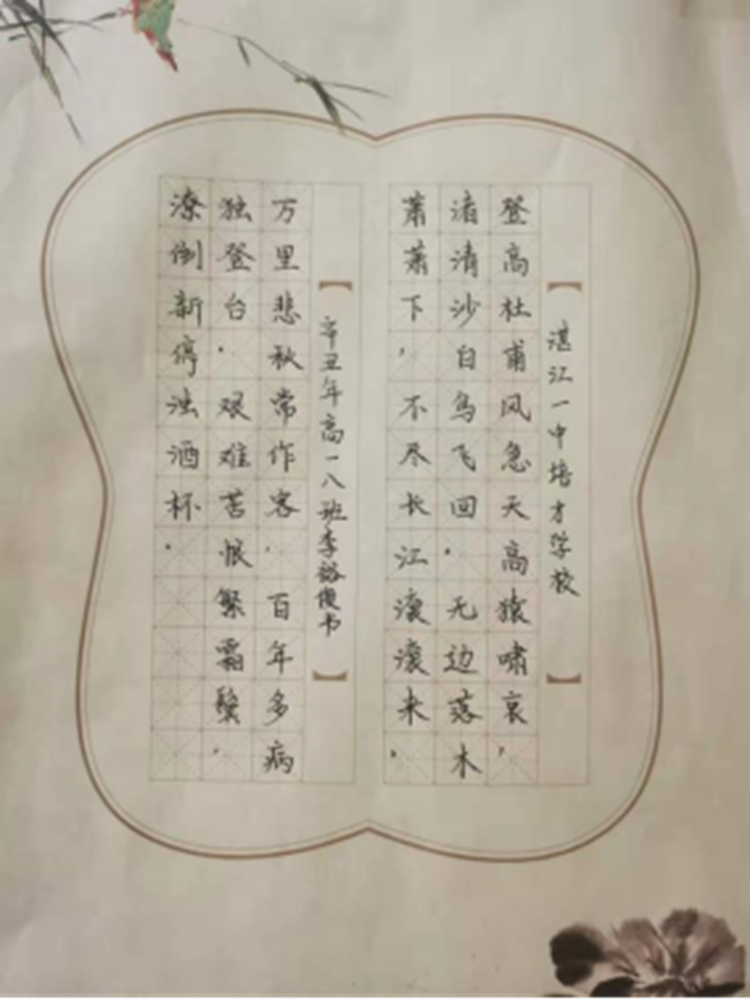 湛江一中培才学校
登高杜甫风急天高猿啸哀，
渚清沙白鸟飞回。无边落木
萧萧下，不尽长江滚滚来，
辛丑年高一八班李裕俊书
万里悲秋常作客.百年多病
独登台.艰难苦恨繁霜鬓，
潦倒新停浊酒杯.